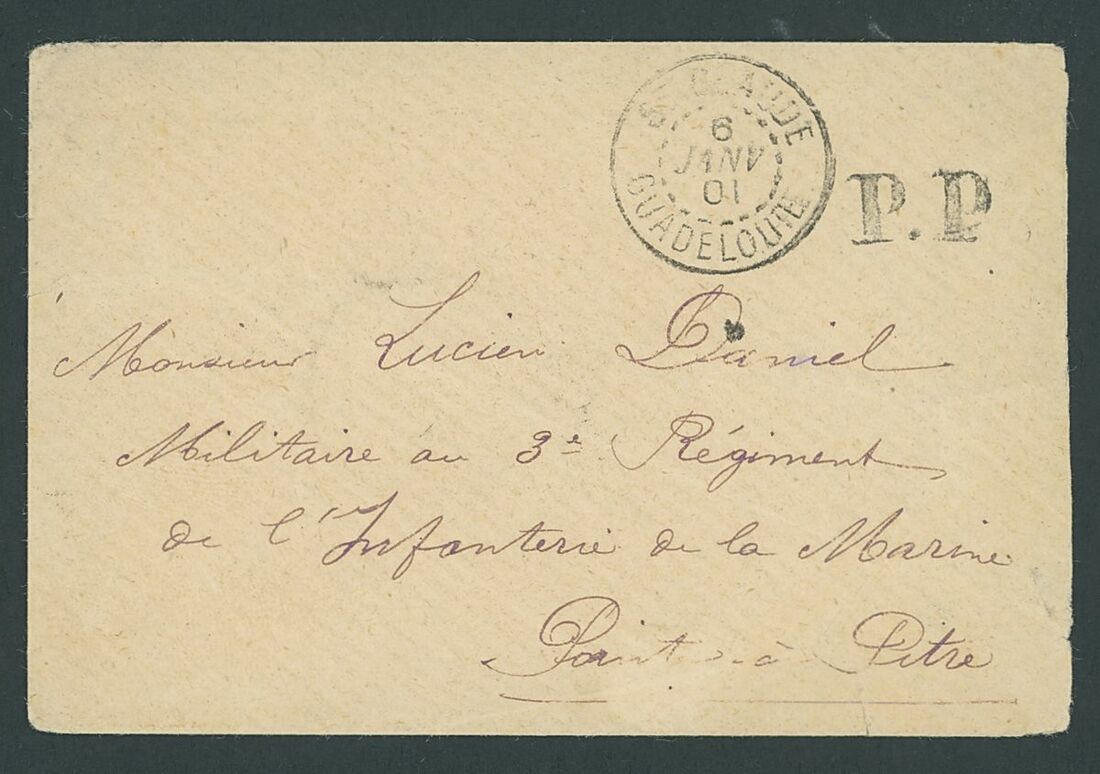 St CLAUDE
6
JANV
01
GUADELOUPE
P.P
Monsieur Lucien Daniel
Militaire au 3e Régiment
de l'Infanterie de la Marine
Pointe à Pitre